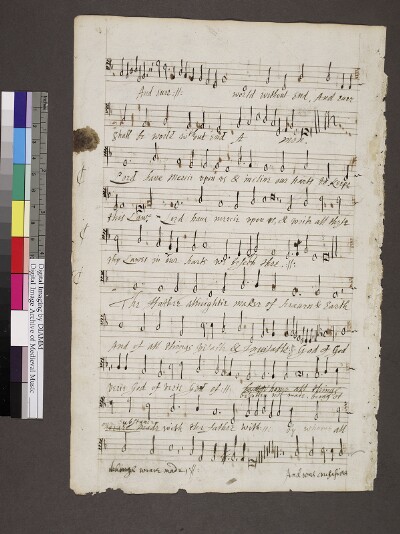 And ever :||: world without End, And ever
shall be world without End A men.
Lord have mercie upon us & incline our harts to keepe
this Law. Lord have mercie upon us, & write all these
thy Lawes in our harts wee beseech thee :||:
The ffather almightie maker of heaven & Earth
And of all things visible & invisible God of God
verie God of verie God of :||:
begotten not made, being of
substance with the father with :||: by whome all
things weare made :||: And was crusified
Digital Imaging by DIAMM
Digital Image Archive of Medieval Music